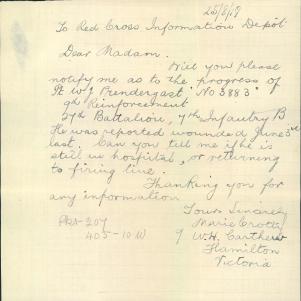 25/8/18
To Red Cross Information Depot
Dear Madam.
Will you please
notify me as to the progress of
Pt W J Prendergast "No 3883"
9th Reinforcement
27th Battalion, 7th Infantry B
He was reported wounded June 3rd
last. Can you tell me if he is
still in hospital, or returning
to firing line.
Thanking you for
any information
Yours Sincerely
Marie Crotty
W.H. Carthew
Hamilton
Victoria